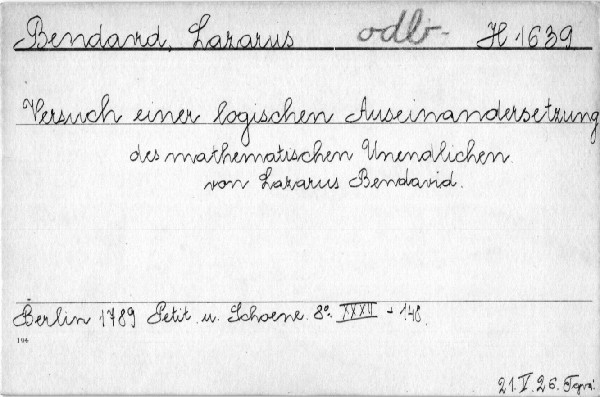 Bendavid, Lazarus odb. H 1639
Versuch einer logischen Auseinandersetzung
des mathematischen Unendlichen.
von Lazarus Bendavid.
Berlin 1789 Petit u. Schoene. 8°. XXXII + 148.
194
21.V.26.